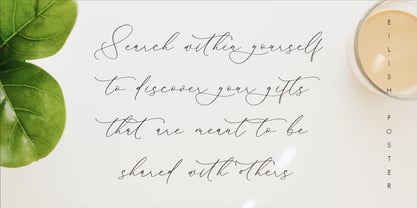 Search within yourself
to discover your gifts
that are meant to be
shared with others
EILISH FOSTER